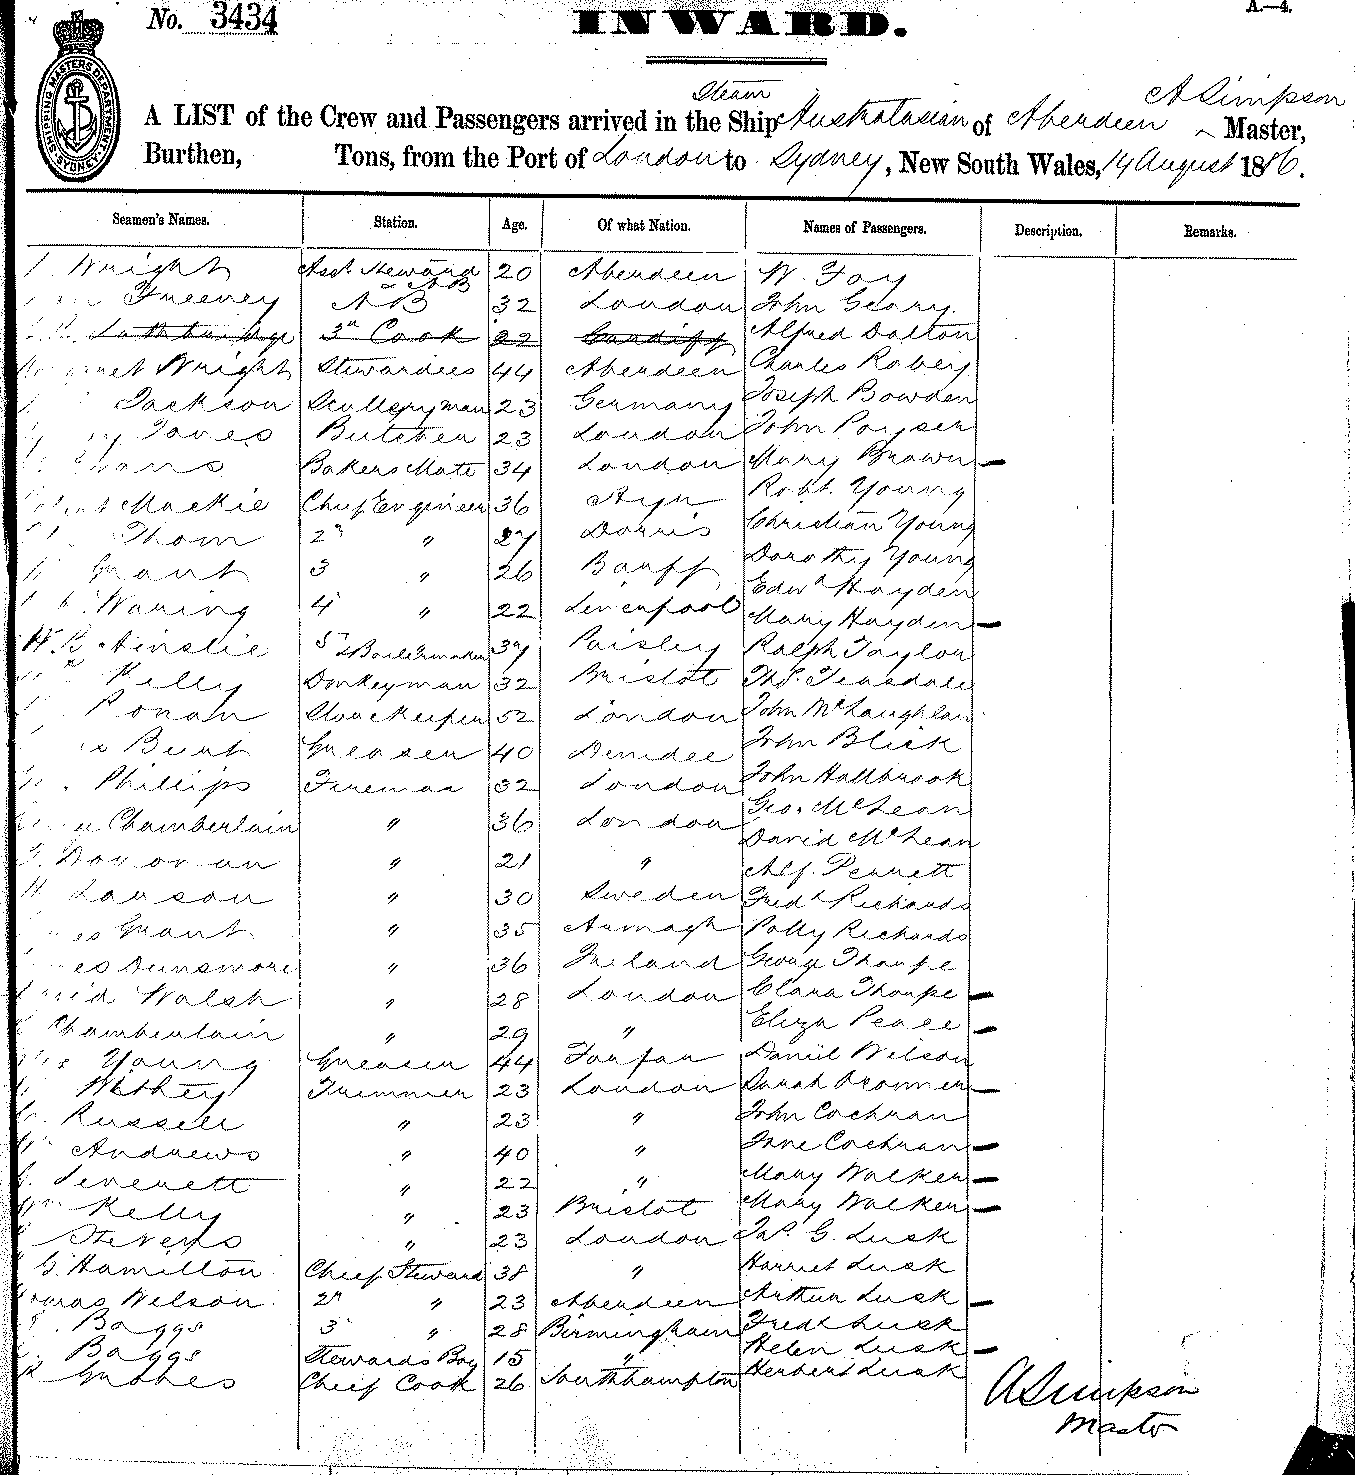 No. 3434
INWARD.
A.—4.
SHIPPING MASTERS DEPARTMENT
Steam
A Simpson
A LIST of the Crew and Passengers arrived in the Ship Australasian of Aberdeen Master,
Burthen, Tons, from the Port of London to Sydney, New South Wales, 14 August 1886.
Seamen's Names. Station. Age. Of what Nation. Names of Passengers. Description. Remarks.
Wright Asst. Steward 20 Aberdeen W. Foy
Freeney AB 32 London John Geary.
3rd Cook 22 Cardiff Alfred Dalton
Wright Stewardess 44 Aberdeen Charles Robey
Jackson Sculleryman 23 Germany Joseph Bowden
Jones Butcher 23 London John Poyser
Evans Bakers Mate 34 London Mary Brown
Mackie Chief Engineer 36 Ayr Robt. Young
Thom 2nd " 27 Christian Young
Grant 3 " 26 Banff Dorothy Young
Waring 4 " 22 Liverpool Edwd Hayden
Mary Hayden
W. B. Ainslie 5th & Boilermaker 37 Paisley Ralph Taylor
Kelly Donkeyman 32 Bristol Ths. Teasdale
Ronan Storekeeper 52 London John McLaughlan
Burt Greaser 40 Dundee John Blick
Phillips Fireman 32 London John Hallbrook
Chamberlain " 36 London Geo. McLean
David McLean
Donovan " 21 " Alf. Perrett
Larson " 30 Sweden Fredk Richards
Grant " 35 Armagh Polly Richards
Dunsmore " 36 Ireland George Thorpe
Walsh " 28 London Clara Thorpe
Chamberlain " 29 " Eliza Pease
Young Greaser 44 Forfar Daniel Wilson
Withey Trimmer 23 London Sarah
Russell " 23 " John Cochran
Andrews " 40 " Jane Cochran
Leverett " 22 " Mary Walker
Kelly " 23 Bristol Mary Walker
Stevens " 23 London Jas. G. Lusk
G. Hamilton Chief Steward 38 " Harriet Lusk
Thomas Wilson 2nd " 23 Aberdeen Arthur Lusk
Baggs 3 " 28 Birmingham Fredk Lusk
Baggs Stewards Boy 15 " Helen Lusk
Chief Cook 26 Southhampton Herbert Lusk
A Simpson
Master